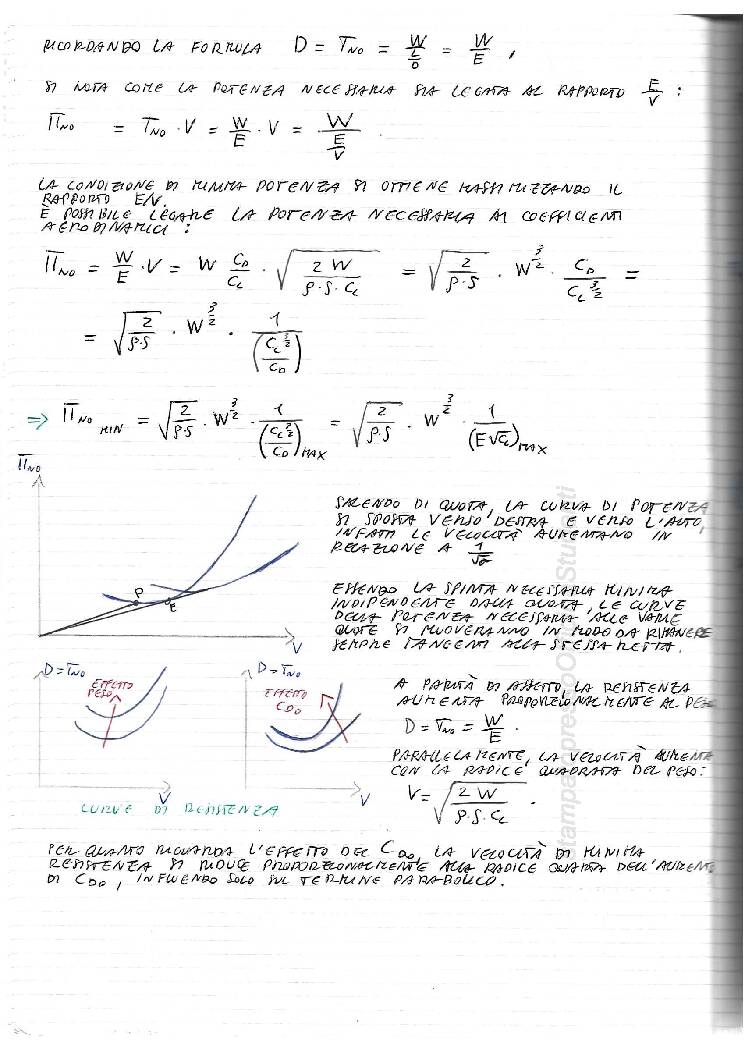 RICORDANDO LA FORMULA D = T_NO = W/(L/D) = W/E ,
SI NOTA COME LA POTENZA NECESSARIA SIA LEGATA AL RAPPORTO E/V :
Π_NO = T_NO · V = W/E · V = W/(E/V) .
LA CONDIZIONE DI MINIMA POTENZA SI OTTIENE MASSIMIZZANDO IL
RAPPORTO E/V.
È POSSIBILE LEGARE LA POTENZA NECESSARIA AI COEFFICIENTI
AERODINAMICI :
Π_NO = W/E · V = W C_D/C_L · √(2W/(ρ·S·C_L)) = √(2/(ρ·S)) · W^(3/2) · C_D/C_L^(3/2) =
= √(2/(ρ·S)) · W^(3/2) · 1/(C_L^(3/2)/C_D)
⇒ Π_NO MIN = √(2/(ρ·S)) · W^(3/2) · 1/(C_L^(3/2)/C_D)_MAX = √(2/(ρ·S)) · W^(3/2) · 1/(E√C_L)_MAX
Π_NO
P
E
V
SALENDO DI QUOTA, LA CURVA DI POTENZA
SI SPOSTA VERSO DESTRA E VERSO L'ALTO,
INFATTI LE VELOCITÀ AUMENTANO IN
RELAZIONE A 1/√σ
ESSENDO LA SPINTA NECESSARIA MINIMA
INDIPENDENTE DALLA QUOTA, LE CURVE
DELLA POTENZA NECESSARIA ALLE VARIE
QUOTE SI MUOVERANNO IN MODO DA RIMANERE
SEMPRE TANGENTI ALLA STESSA RETTA.
D=T_NO
EFFETTO
PESO
V
D=T_NO
EFFETTO
C_D0
V
CURVE DI RESISTENZA
A PARITÀ DI ASSETTO, LA RESISTENZA
AUMENTA PROPORZIONALMENTE AL PES
D = T_NO = W/E .
PARALLELAMENTE, LA VELOCITÀ AUMENTA
CON LA RADICE QUADRATA DEL PESO:
V = √(2W/(ρ·S·C_L)) .
PER QUANTO RIGUARDA L'EFFETTO DEL C_D0, LA VELOCITÀ DI MINIMA
RESISTENZA SI RIDUCE PROPORZIONALMENTE ALLA RADICE QUARTA DELL'AUMENT
DI C_D0, INFLUENDO SOLO SUL TERMINE PARABOLICO.